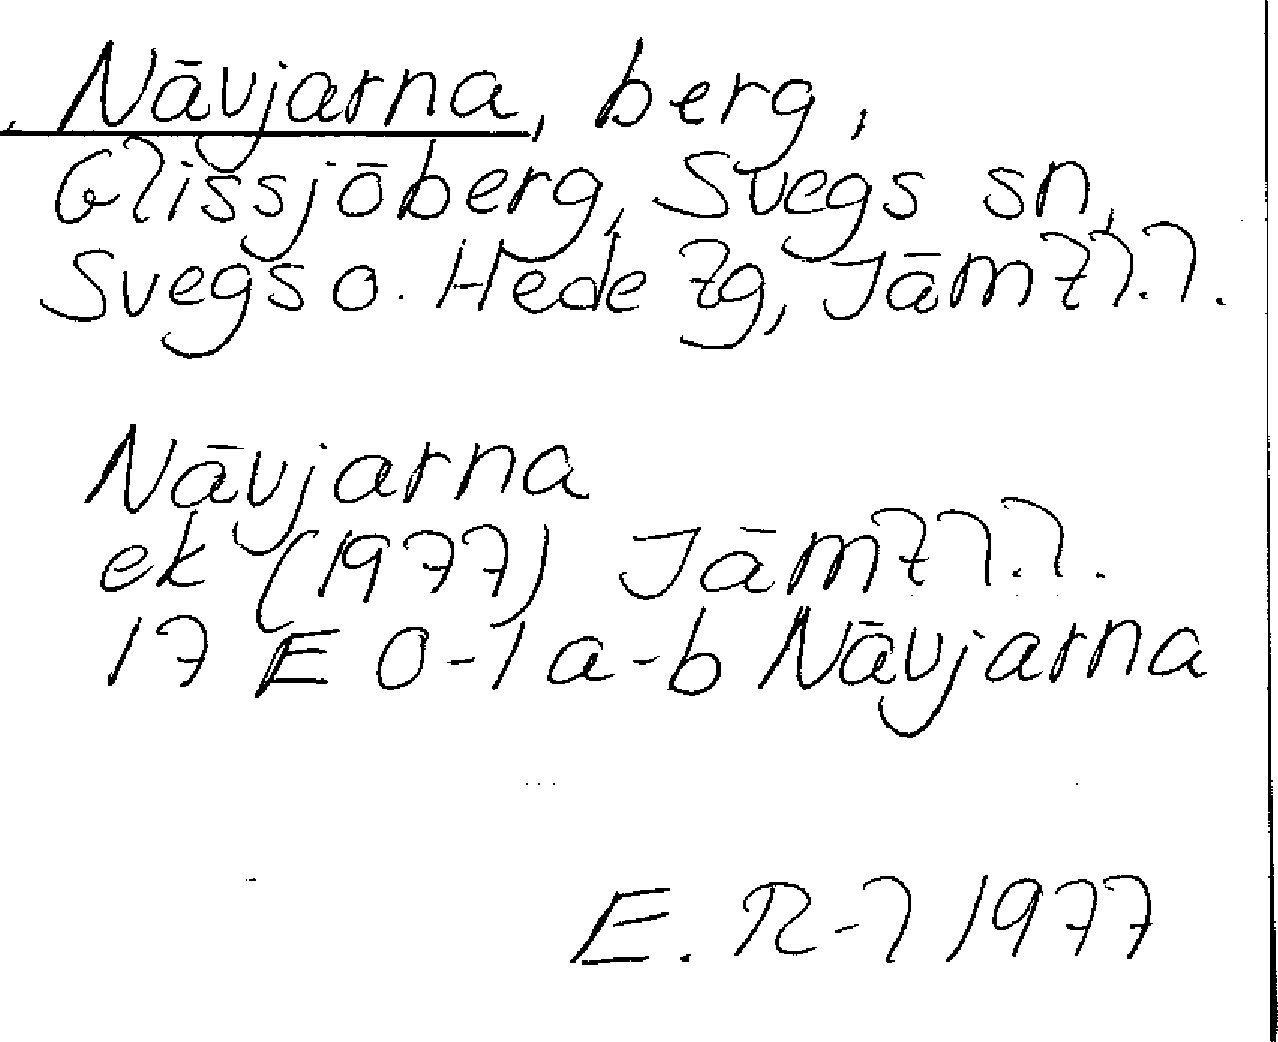 Nävjarna, berg,
Glissjöberg, Svegs sn,
Svegs o. Hede tg, Jämtl.l.
Nävjarna
ek (1977) Jämtl.l.
17 E 0-1 a-b Nävjarna
E. R-l 1977